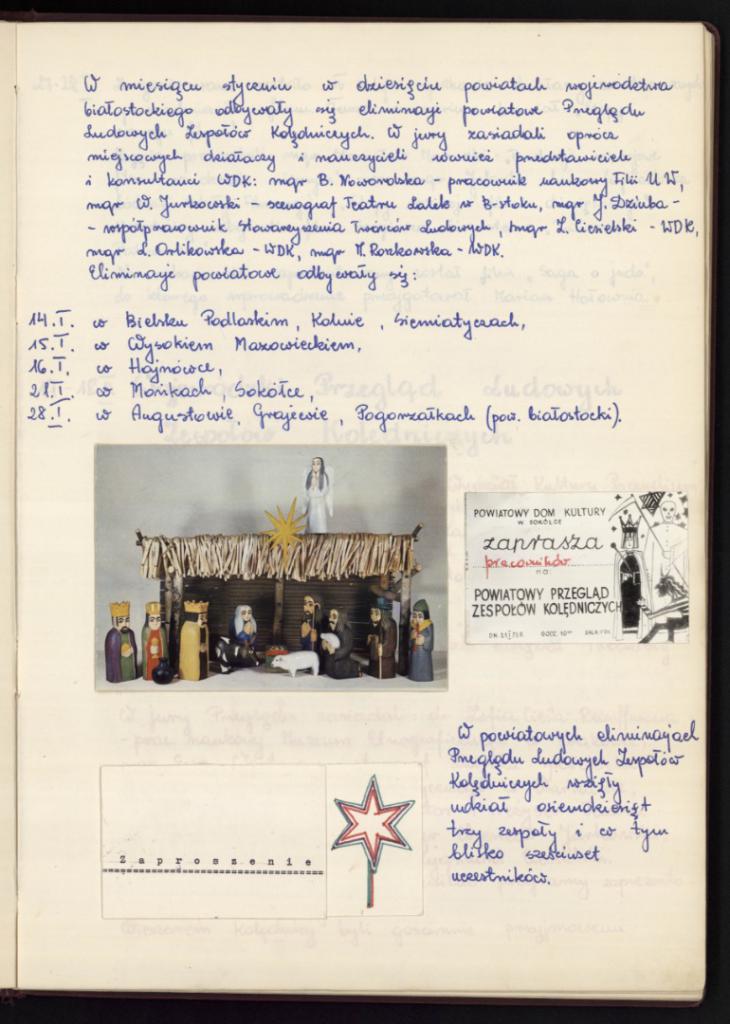 W miesiącu styczniu w dziesięciu powiatach województwa
białostockiego odbywały się eliminacje powiatowe Przeglądu
Ludowych Zespołów Kolędniczych. W jury zasiadali oprócz
miejscowych działaczy i nauczycieli również przedstawiciele
i konsultanci WDK: mgr B. Nowordska - pracownik naukowy Filii UW,
mgr W. Jurkowski - scenograf Teatru Lalek w B-stoku, mgr J. Dziuba -
- współpracownik Stowarzyszenia Twórców Ludowych, mgr Z. Ciesielski - WDK,
mgr L. Orlikowska - WDK, mgr M. Roszkowska - WDK.
Eliminacje powiatowe odbywały się:
14.I. w Bielsku Podlaskim, Kolnie, Siemiatyczach,
15.I. w Wysokiem Mazowieckiem,
16.I. w Hajnówce,
21.I. w Mońkach, Sokółce,
28.I. w Augustowie, Grajewie, Pogorzałkach (pow. białostocki).
POWIATOWY DOM KULTURY
W SOKÓŁCE
zaprasza
pracowników
na:
POWIATOWY PRZEGLĄD
ZESPOŁÓW KOLĘDNICZYCH
W powiatowych eliminacjach
Przeglądu Ludowych Zespołów
Kolędniczych wzięły
udział osiemdziesiąt
trzy zespoły i w tym
blisko sześciuset
uczestników.
Zaproszenie